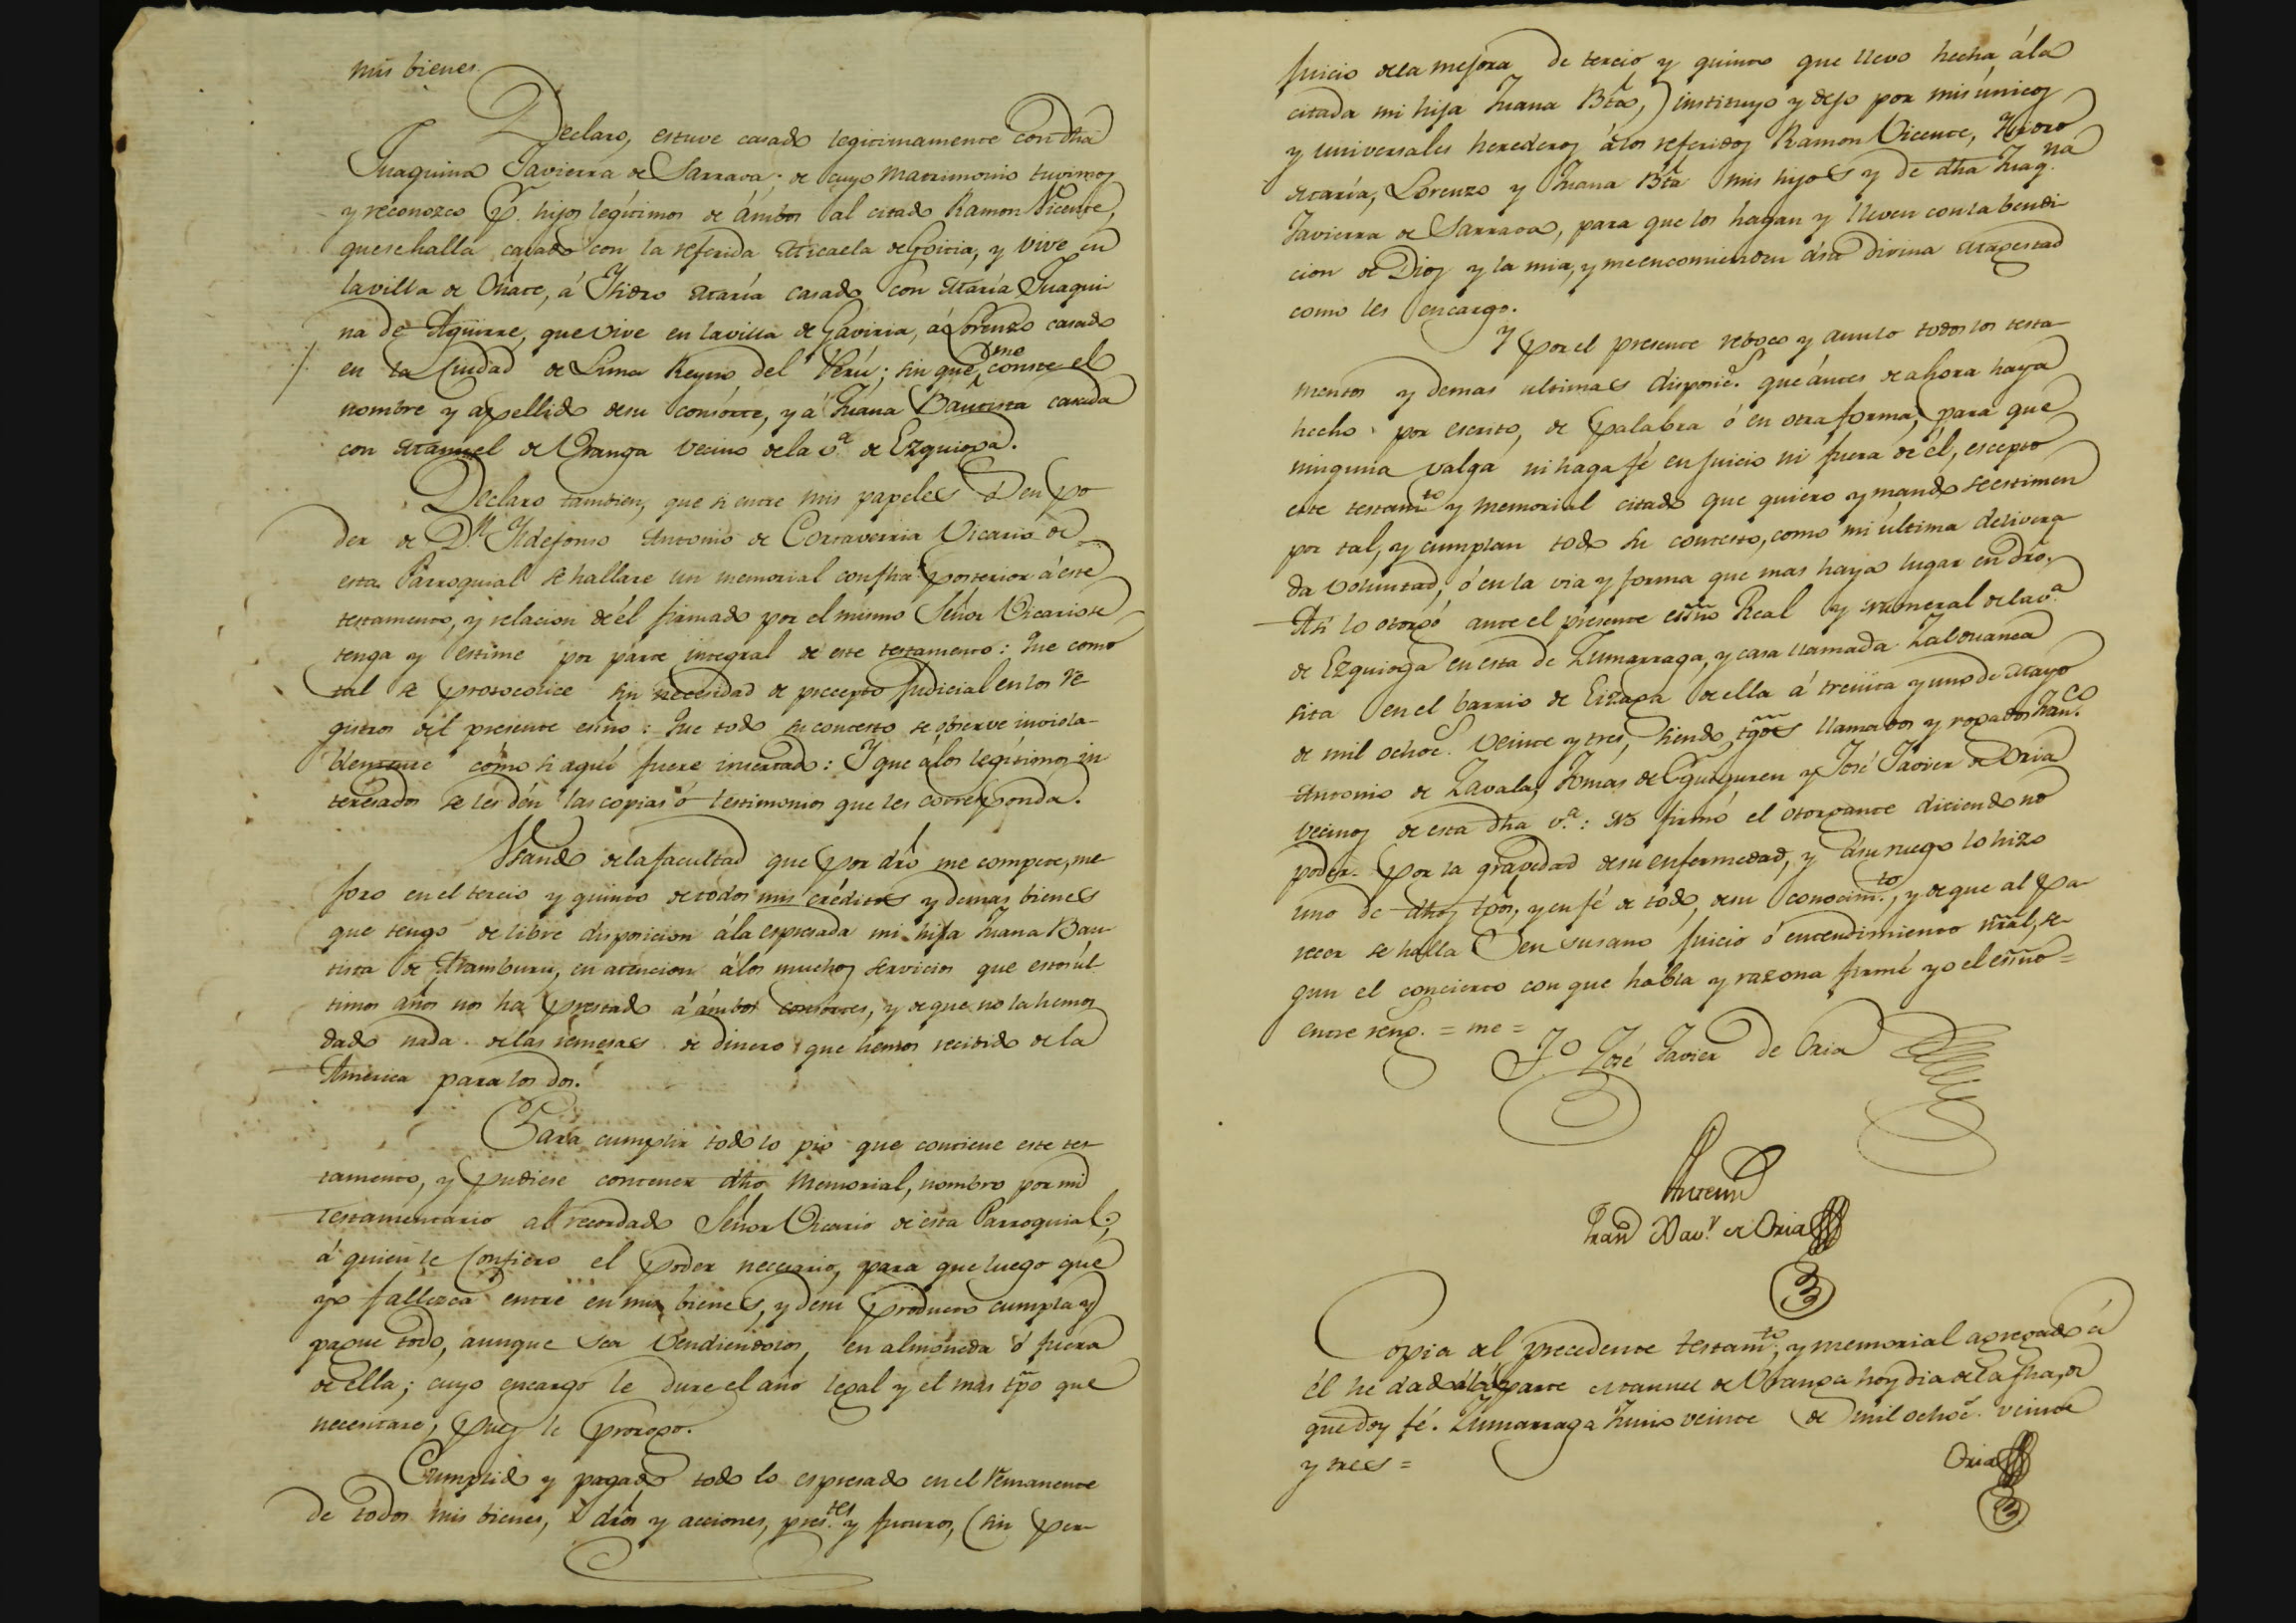 mis bienes.
Declaro, estuve casado legitimamente con dha
Juaquina Javierra de Sarraoa; de cuyo Matrimonio tuvimos
y reconozco pr. hijos legítimos de ámbos al citado Ramon Vicente,
que se halla casado con la referida Micaela de Goitia, y vive en
la villa de Oñate, á Ysidro María casado con María Juaqui-
na de Aguirre, que vive en la villa de Gaviria, á Lorenzo casado
en la Ciudad de Lima Reyno del Perú; sin que me conste el
nombre y apellido de su consorte, y á Juana Bautista casada
con Manuel de Uranga vecino de la v.a de Ezquioga.
Declaro tambien, que si entre mis papeles ó en po
der de D.n Yldefonso Antonio de Cortaverria Vicario de
esta Parroquial se hallare un memorial con fha posterior á este
testamento, y relacion de él firmado por el mismo Señor Vicario se
tenga y estime por parte integral de este testamento: Que como
tal se protocolice sin necesidad de precepto judicial en los re
gistros del presente esño: Que todo su contesto se observe inviola-
blemente como si aquí fuere insertado: Y que á los legítimos in
teresados se les dén las copias ó testimonios que les corresponda.
Usando de la facultad que por dro me compete, me
joro en el tercio y quinto de todos mis créditos y demas bienes
que tengo de libre disposicion á la espresada mi hija Juana Bau-
tista de Aramburu, en atencion á los muchos servicios que estos úl-
timos años nos ha prestado á ámbos consortes, y de que no la hemos
dado nada de las remesas de dinero que hemos recibido de la
América para los dos.
Para cumplir todo lo pio que contiene este tes-
tamento, y pudiese contener dho Memorial, nombro por mi
Testamentario al recordado Señor Vicario de esta Parroquial;
á quien le confiero el poder necesario, para que luego que
yo fallezca entre en mis bienes, y de su producto cumpla y
pague todo, aunque sea vendiendolos, en almóneda ó fuera
de ella; cuyo encargo le dure el año legal y el mas tpo que
necesitare, pues le prorogo.
Cumplido y pagado todo lo espresado en el remanente
de todos mis bienes, dros y acciones, pres.tes y futuros, (sin per-
juicio de la mejora de tercio y quinto que llevo hecha á la
citada mi hija Juana Bta,) instituyo y dejo por mis únicos
y universales herederos á los referidos Ramon Vicente, Ysidro
María, Lorenzo y Juana Bta mis hijos y de dha Juaq.na
Javierra de Sarraoa, para que los hagan y lleven con la bendi-
cion de Dios y la mia, y me encomienden á su divina Magestad
como les encargo.
Y por el presente reboco y anulo todos los testa-
mentos y demas ultimas disposic.s que ántes de ahora haya
hecho por escrito, de palabra ó en otra forma, para que
ninguna valga ni haga fé en juicio ni fuera de él, escepto
este testam.to y memorial citado que quiero y mando se estimen
por tal, y cumplan todo su contesto, como mi última delivera-
da voluntad, ó en la via y forma que mas haya lugar en dro,
Asi lo otorgó ante el presente esño Real y numeral de la v.a
de Ezquioga en esta de Zumarraga, y casa llamada Zalduanea
sita en el barrio de Eizaga de ella á treinta y uno de Mayo
de mil ochoc.s veinte y tres, siendo tgos llamados y rogados Fran.co
Antonio de Zavala, Tomas de Eguiguren y José Javier de Oria
vecinos de esta dha v.a: No firmó el otorgante diciendo no
poder por la gravedad de su enfermedad, y á su ruego lo hizo
uno de dhos tgos, y en fé de todo, de su conocim.to, y de que al pa-
recer se halla en su sano juicio ó entendimiento nral, se-
gun el concierto con que habla y razona firmé yo el esño =
entre reng.s = me =
Yo José Javier de Oria
Antemi
Fran.co Xav.r de Oria
Copia del precedente testam.to, y memorial agregado á
él he dado á la parte Manuel de Uranga hoy dia de la fha, de
que doy fé. Zumarraga Junio veinte de mil ochoc. veinte
y tres =
Oria